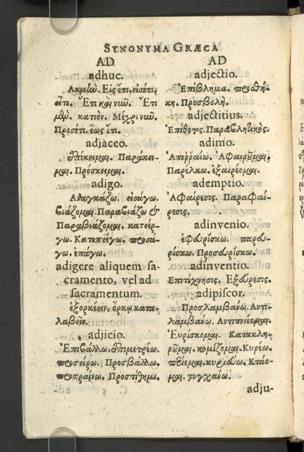 SYNONYMA GRÆCA
AD
adhuc.
Ἀκμὼ. Εἰς ἔτι. εἰσέτι.
ἔτι. Ἔτι καὶ νιῶ. Ἔτι
κατιόν. Μέχρι νιῶ.
Προσέτι. ἕως ἔτι.
adjaceo.
ἐπίκειμαι. Παράκει-
μαι. Πρόσκειμαι.
adigo.
Ἀναγκάζω. εἰσάγω.
βιάζομαι. Παραβιάζω &
Παραβιάζομαι. κατείρ-
γω. Κατεπείγω. προσά-
γω. ἐπάγω.
adigere aliquem sa-
cramento, vel ad
sacramentum.
ἐξορκίζειν. ὅρκῳ κατα-
λαβεῖν.
adjicio.
Ἐπιβάλλω. ἐπιμετρέω.
Προσβάλλω.
Προστίθημι.
AD
adjectio.
Ἐπίβλημα. προσθή-
κη. Προσβολή.
adjectitius.
Ἐπίθετος.
adimo.
Ἀπορραίω. Ἀφαιροῦμαι.
Παρέλκω. ἐξαιρέομαι.
ademptio.
Ἀφαίρεσις. Παραφαί-
ρεσις.
adinvenio.
ἐφευρίσκω. παρευ-
ρίσκω. Προσευρίσκω.
adinventio.
Ἐπιτέχνησις. Ἐξεύρεσις.
adipiscor.
Προσλαμβάνω. Ἀντι-
λαμβάνω.
Εὑρίσκομαι. Κατακλη-
ροῦμαι. κομίζομαι. Κυρέω.
Κτάο-
μαι. τυγχάνω.
adju-